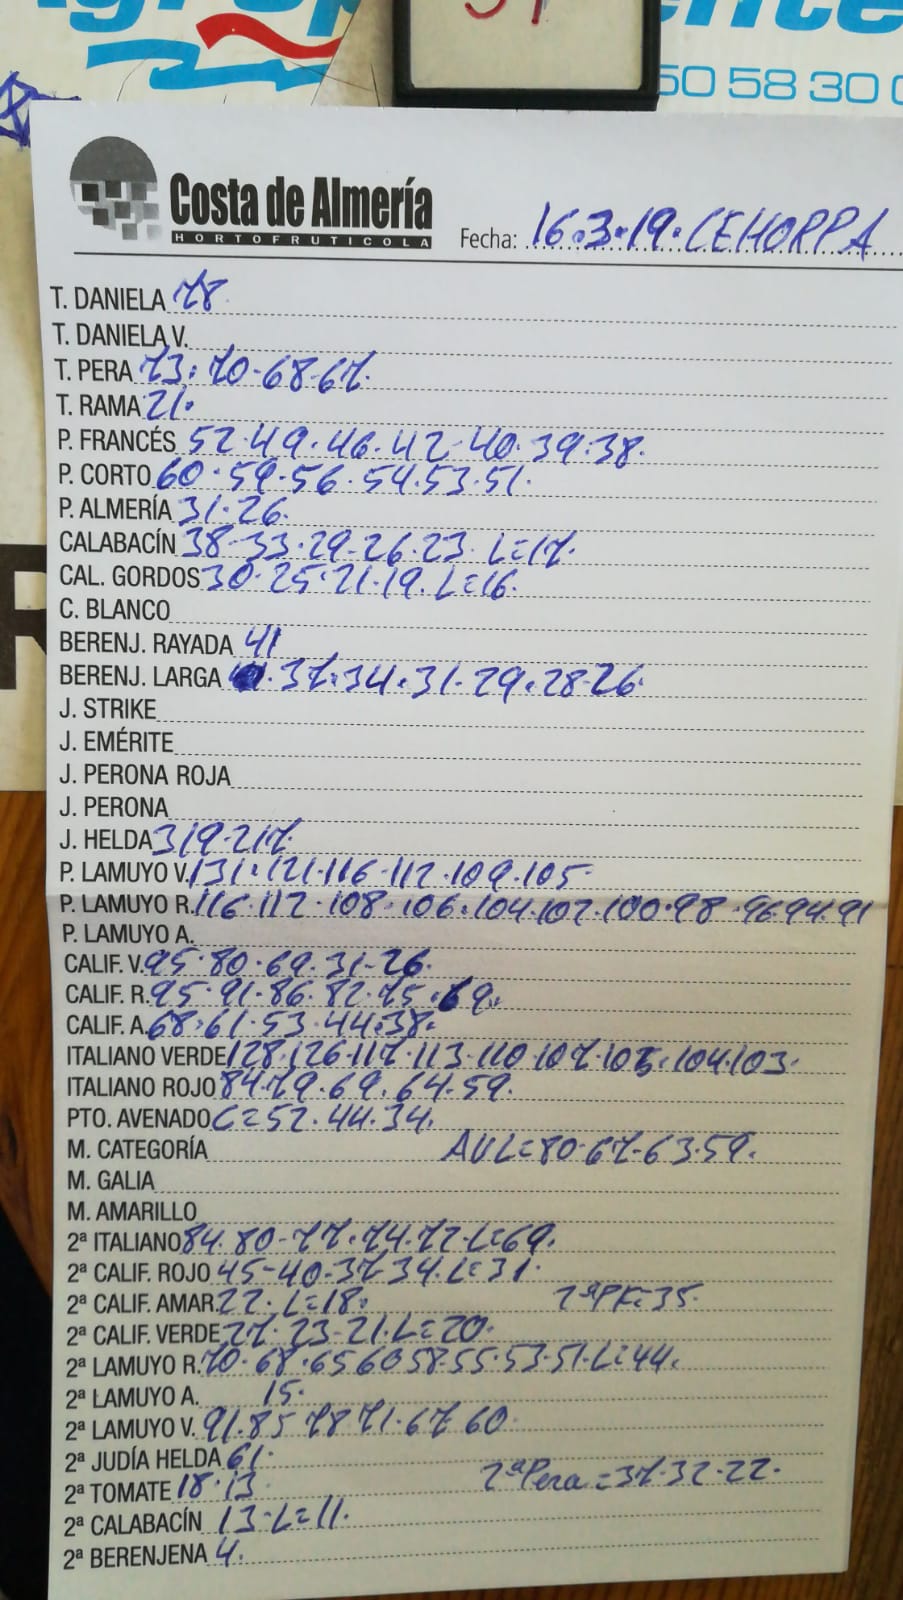 50 58 30
Costa de Almería
HORTOFRUTICOLA
Fecha: 16.3.19. CEHORPA
T. DANIELA 78
T. DANIELA V.
T. PERA 73. 70-68-67.
T. RAMA 21.
P. FRANCÉS 52.49.46.42-40.39.38.
P. CORTO 60.59-56.54.53.51.
P. ALMERÍA 31.26.
CALABACÍN 38-33-29-26.23. L=17.
CAL. GORDOS 30.25.21.19. L=16.
C. BLANCO
BERENJ. RAYADA 41
BERENJ. LARGA 37.34.31.29.28-26.
J. STRIKE
J. EMÉRITE
J. PERONA ROJA
J. PERONA
J. HELDA 319-217.
P. LAMUYO V. 131.121.116-112.109.105
P. LAMUYO R. 116.112.108.106.104.102.100.98.96.94.91
P. LAMUYO A.
CALIF. V. 95.80.69.31-26.
CALIF. R. 95-91-86.82.75.69.
CALIF. A. 68.61.53.44.38.
ITALIANO VERDE 128.126.117.113-110.107.105.104.103.
ITALIANO ROJO 84.79.69.64.59.
PTO. AVENADO C=52.44.34.
M. CATEGORÍA AVL=80.67-63.59.
M. GALIA
M. AMARILLO
2ª ITALIANO 84.80-77.74.72-L=69.
2ª CALIF. ROJO 45-40.37.34.L=31.
2ª CALIF. AMAR. 22. L=18. 2ªPK=35
2ª CALIF. VERDE 27.23-21.L=20.
2ª LAMUYO R. 70.68.65 60 58.55.53.51.L=44.
2ª LAMUYO A. 15.
2ª LAMUYO V. 91.85 78 71.67 60
2ª JUDÍA HELDA 61.
2ª TOMATE 18.13 2ªPera=37.32-22.
2ª CALABACÍN 13-L=11.
2ª BERENJENA 4.